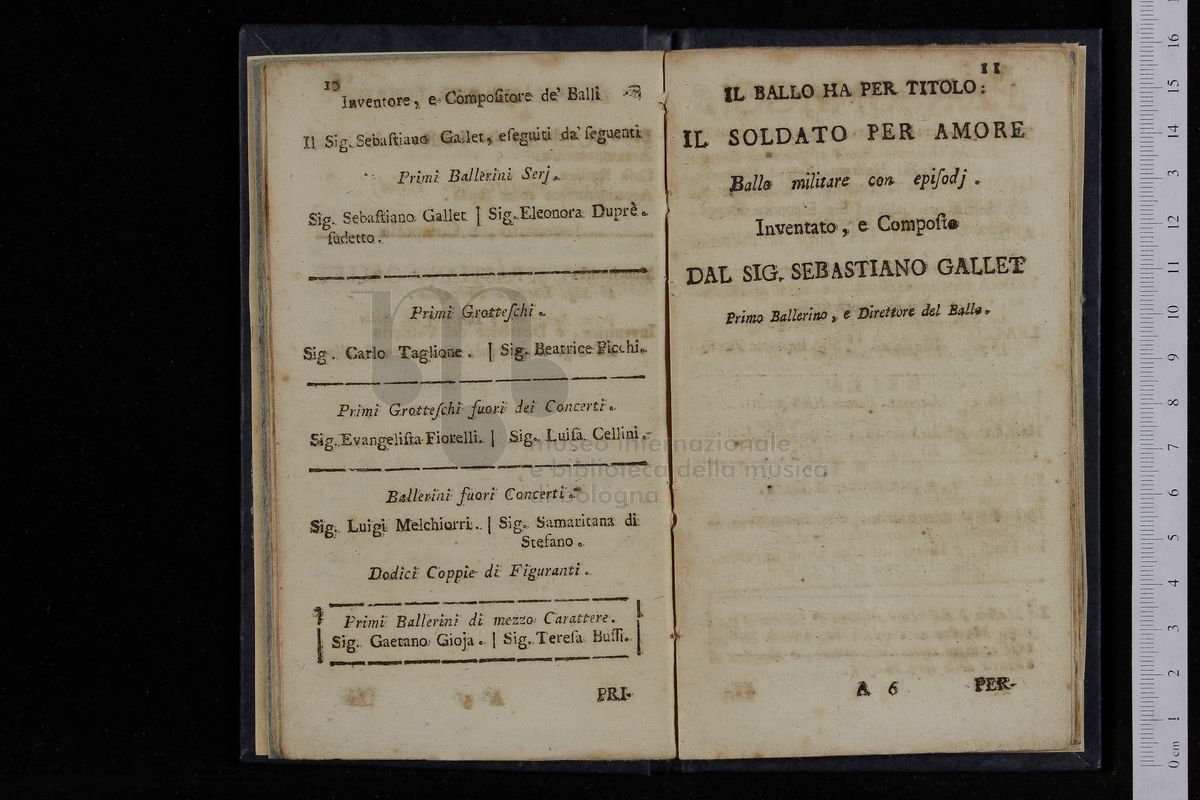 10
Inventore, e Compoſitore de' Balli
Il Sig. Sebaſtiano Gallet, eſeguiti da' ſeguenti
Primi Ballerini Serj.
Sig. Sebaſtiano Gallet | Sig. Eleonora Duprè.
ſudetto.
Primi Grotteſchi.
Sig. Carlo Taglione. | Sig. Beatrice Picchi.
Primi Grotteſchi fuori dei Concerti.
Sig. Evangeliſta Fiorelli. | Sig. Luiſa Cellini.
Ballerini fuori Concerti.
Sig. Luigi Melchiorri. | Sig. Samaritana di
Stefano.
Dodici Coppie di Figuranti.
Primi Ballerini di mezzo Carattere.
Sig. Gaetano Gioja. | Sig. Tereſa Buſſi.
PRI-
11
IL BALLO HA PER TITOLO:
IL SOLDATO PER AMORE
Ballo militare con epiſodj.
Inventato, e Compoſto
DAL SIG. SEBASTIANO GALLET
Primo Ballerino, e Direttore del Ballo.
A 6 PER-
museo internazionale
e biblioteca della musica
di bologna
0 cm 1 2 3 4 5 6 7 8 9 10 11 12 13 14 15 16